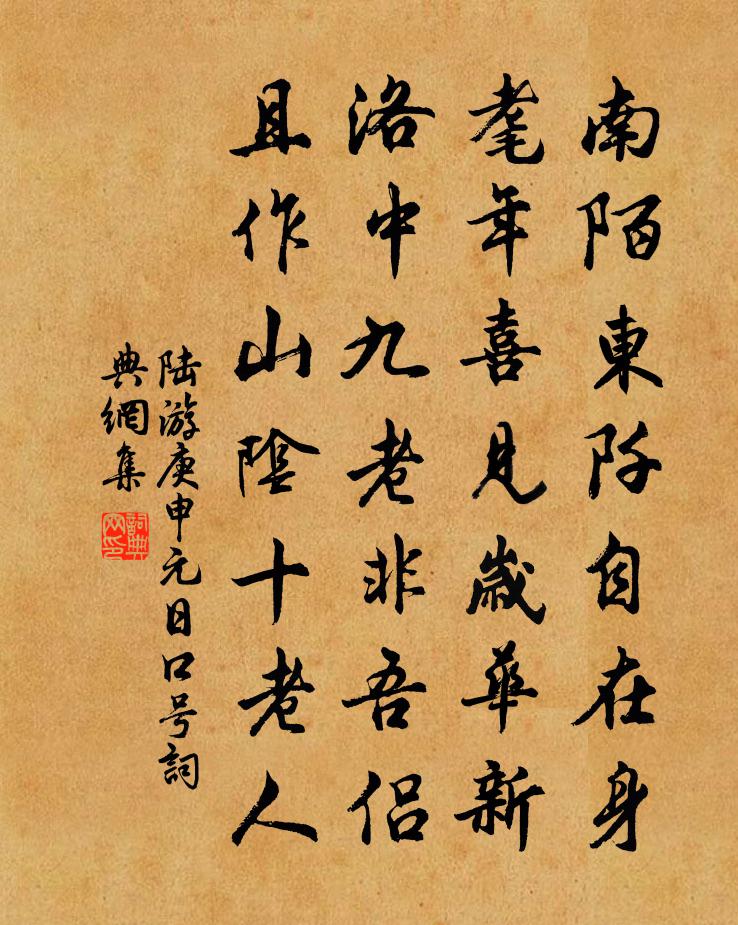 南陌東阡自在身
耄年喜見歲華新
洛中九老非吾侶
且作山陰十老人
陸游庚申元日口号詞
典網集
詞典網印